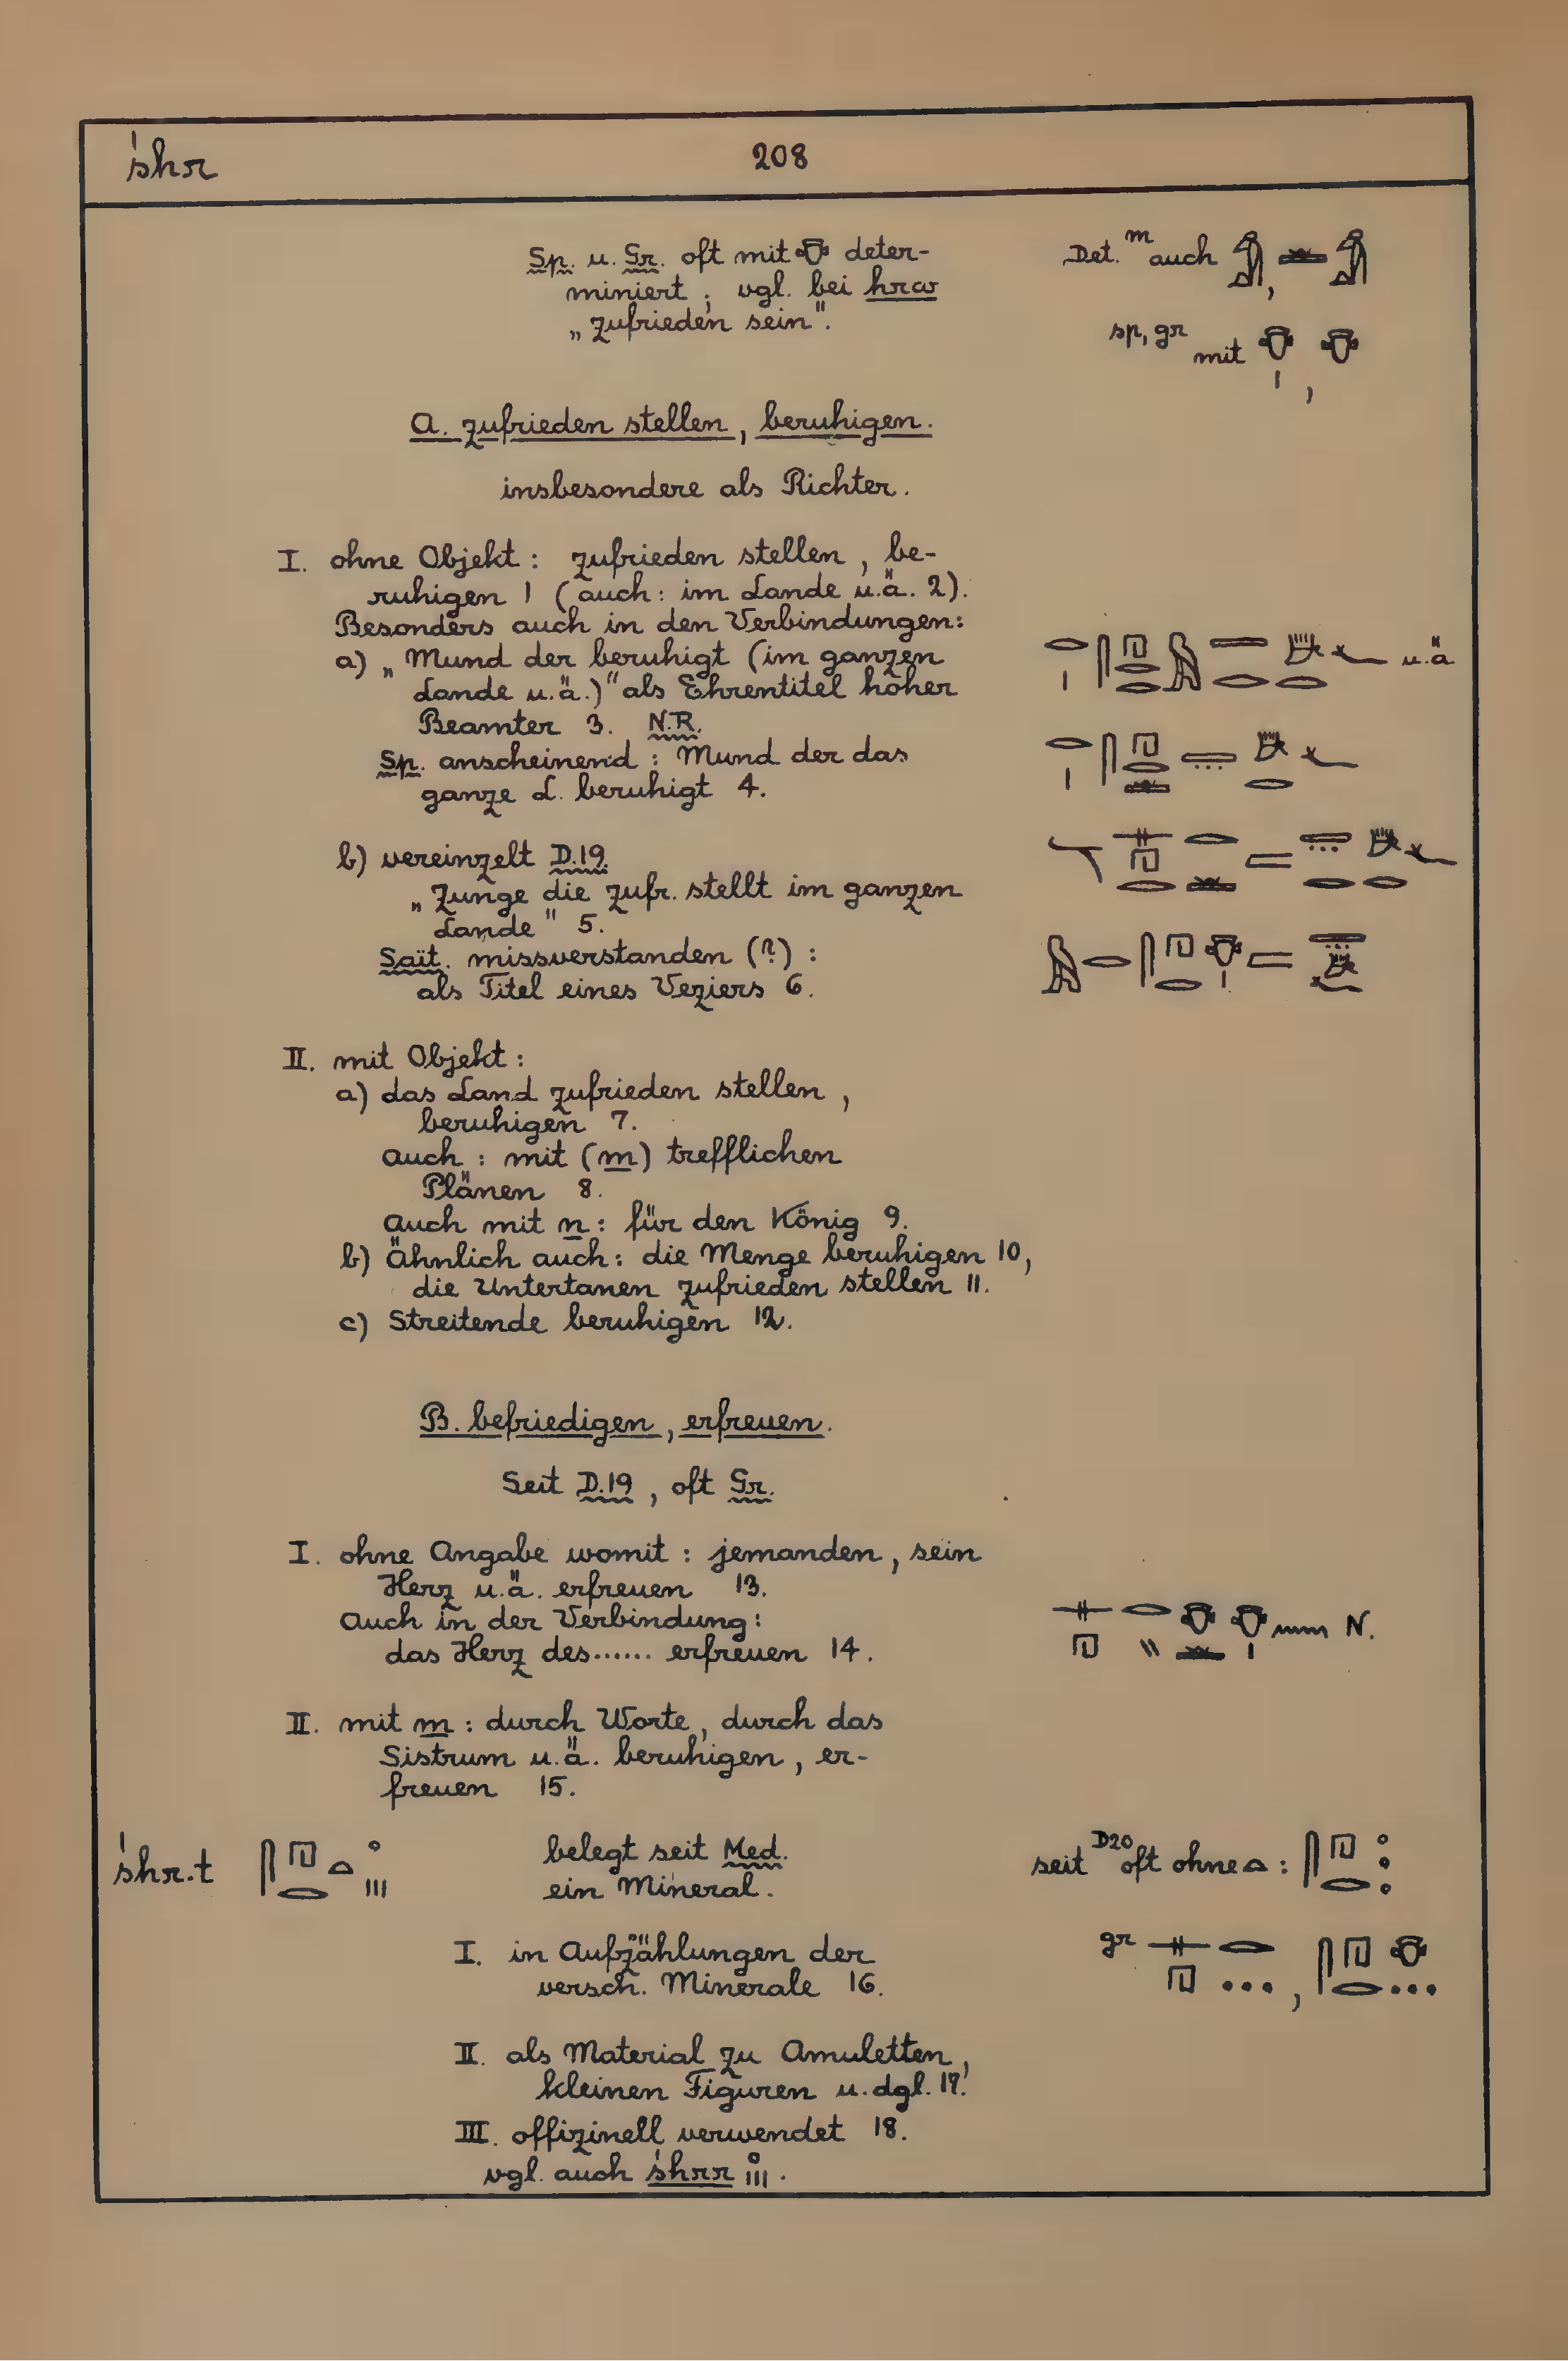 śhr 208
Sp. u. Gr. oft mit 𓄣 deter- Det. m auch
miniert; vgl. bei hrw
„zufrieden sein". sp, gr mit 𓄣𓏤, 𓄣
A. zufrieden stellen, beruhigen.
insbesondere als Richter.
I. ohne Objekt: zufrieden stellen, be-
ruhigen 1 (auch: im Lande u.ä. 2).
Besonders auch in den Verbindungen:
a) „Mund der beruhigt (im ganzen u.ä
Lande u.ä.)" als Ehrentitel hoher
Beamter 3. N.R.
Sp. anscheinend: Mund der das
ganze L. beruhigt 4.
b) vereinzelt D.19.
„Zunge die zufr. stellt im ganzen
Lande" 5.
Saït. missverstanden (?):
als Titel eines Veziers 6.
II. mit Objekt:
a) das Land zufrieden stellen,
beruhigen 7.
auch: mit (m) trefflichen
Plänen 8.
Auch mit n: für den König 9.
b) Ähnlich auch: die Menge beruhigen 10,
die Untertanen zufrieden stellen 11.
c) Streitende beruhigen 12.
B. befriedigen, erfreuen.
Seit D.19, oft Gr.
I. ohne Angabe womit: jemanden, sein
Herz u.ä. erfreuen 13.
Auch in der Verbindung: N.
das Herz des...... erfreuen 14.
II. mit m: durch Worte, durch das
Sistrum u.ä. beruhigen, er-
freuen 15.
śhr.t 𓋴𓉔𓂋𓏏 belegt seit Med. seit D20 oft ohne 𓏏: 𓋴𓉔𓂋
ein Mineral.
I. in Aufzählungen der gr
versch. Minerale 16.
II. als Material zu Amuletten,
kleinen Figuren u. dgl. 17.
III. offizinell verwendet 18.
vgl. auch śhrr